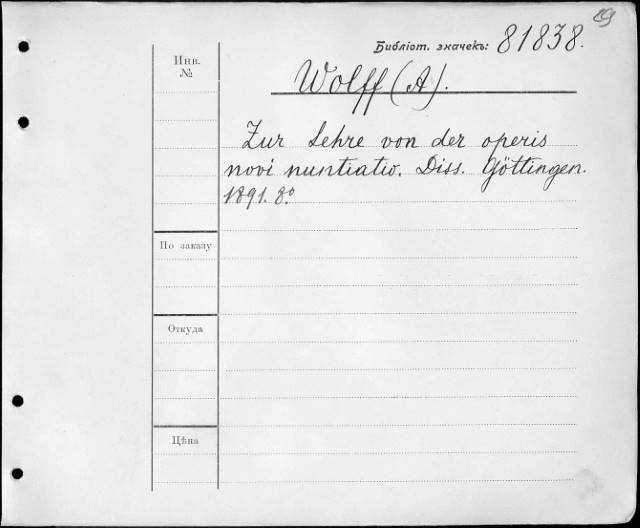 Библіот. значекъ: 81838.
Инв.
№
Wolff (A).
Zur Lehre von der operis
novi nuntiatio. Diss. Göttingen.
1891. 8°
По заказу
Откуда
Цѣна